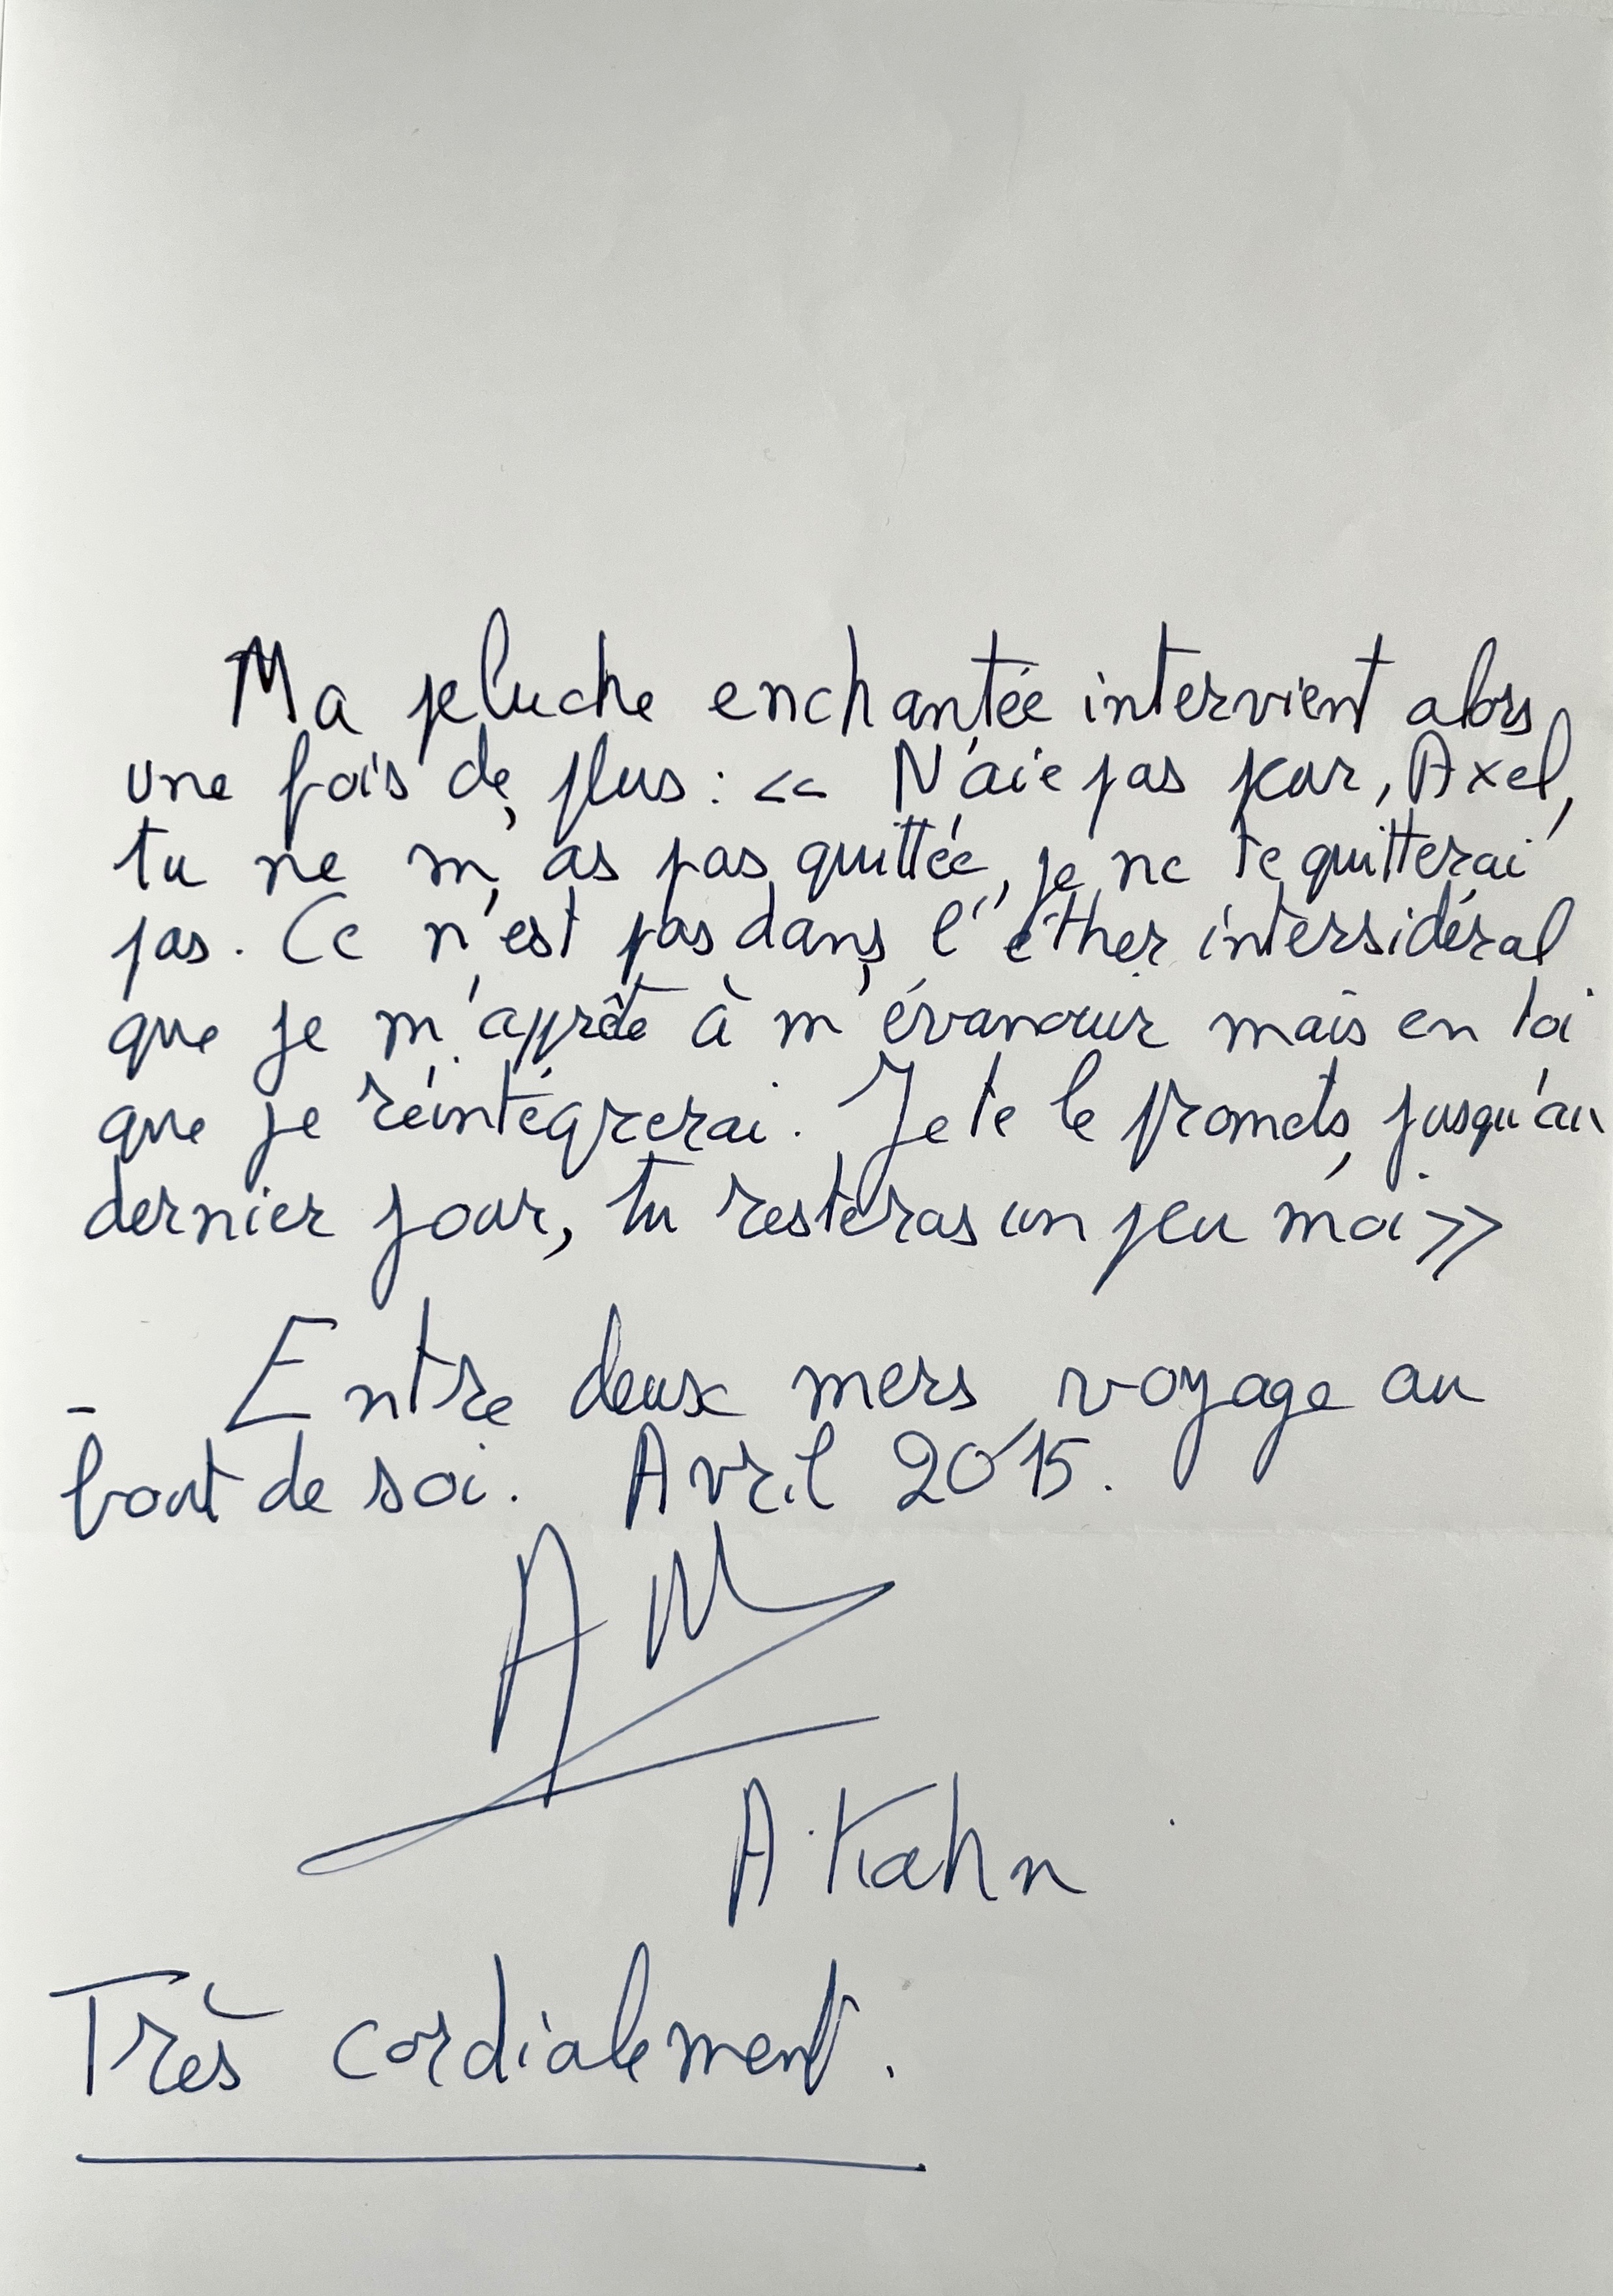 Ma peluche enchantée intervient alors
une fois de plus : << N'aie pas peur, Axel,
tu ne m'as pas quittée, je ne te quitterai
pas. Ce n'est pas dans l'éther intersidéral
que je m'apprête à m'évanouir mais en toi
que je réintégrerai. Je te le promets, jusqu'au
dernier jour, tu resteras un peu moi >>
- Entre deux mers, voyage au
bout de soi. Avril 2015.
A. Kahn
Très cordialement.